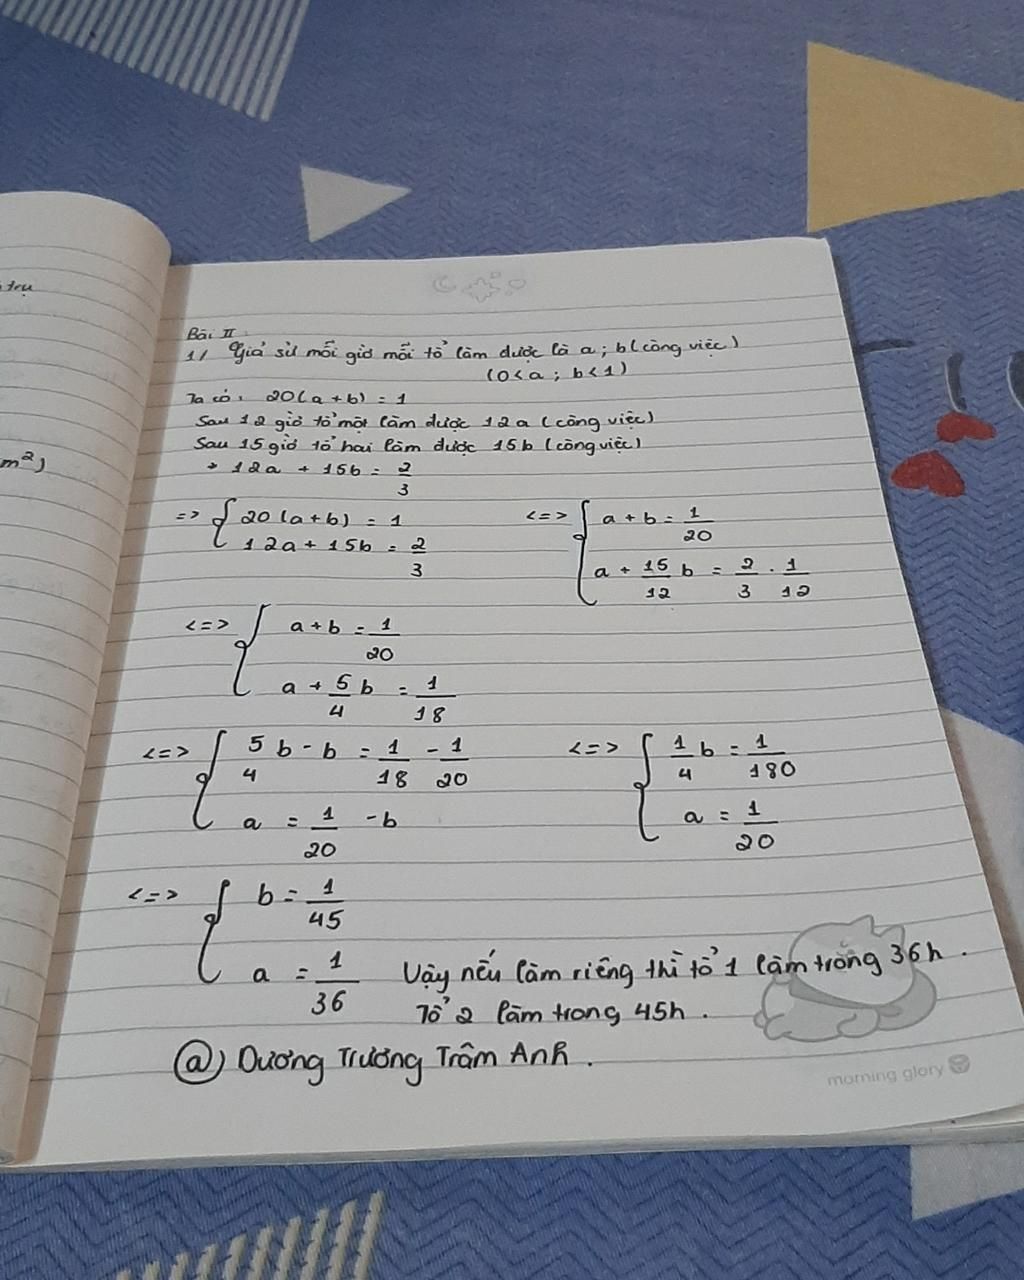 trụ
m²)
Bài II.
1/ Giả sử mỗi giờ mỗi tổ làm được là a; b (công việc)
(0 < a ; b < 1)
Ta có: 20(a+b) = 1
Sau 12 giờ tổ một làm được 12a (công việc)
Sau 15 giờ tổ hai làm được 15b (công việc)
→ 12a + 15b = 2/3
=> { 20(a+b) = 1
12a + 15b = 2/3
<=> { a + b = 1/20
a + 15/12 b = 2/3 . 1/12
<=> { a + b = 1/20
a + 5/4 b = 1/18
<=> { 5/4 b - b = 1/18 - 1/20
a = 1/20 - b
<=> { 1/4 b = 1/180
a = 1/20
<=> { b = 1/45
a = 1/36 Vậy nếu làm riêng thì tổ 1 làm trong 36h.
Tổ 2 làm trong 45h.
@) Dương Trương Trâm Anh.
morning glory